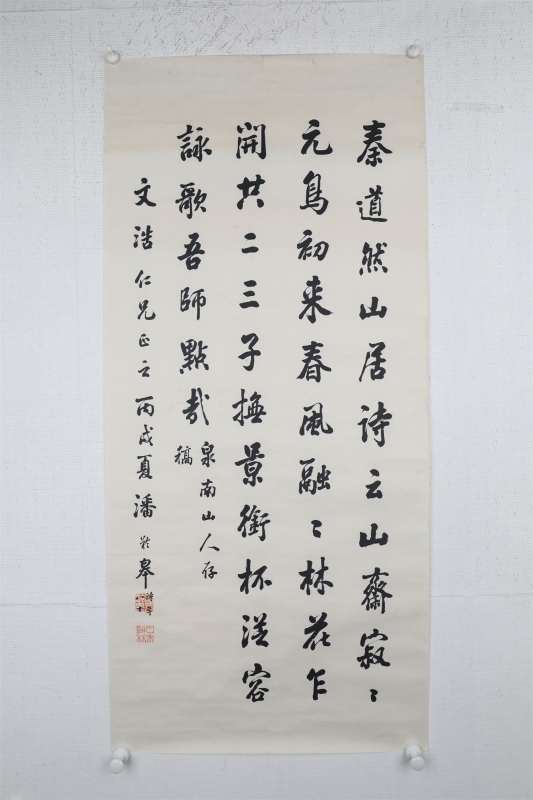 秦道然山居詩云山齋寂〻
元鳥初来春風融〻林花乍
開共二三子撫景銜杯從容
詠歌吾師點哉
泉南山人存
稿
文浩仁兄正之丙戌夏潘齡皋